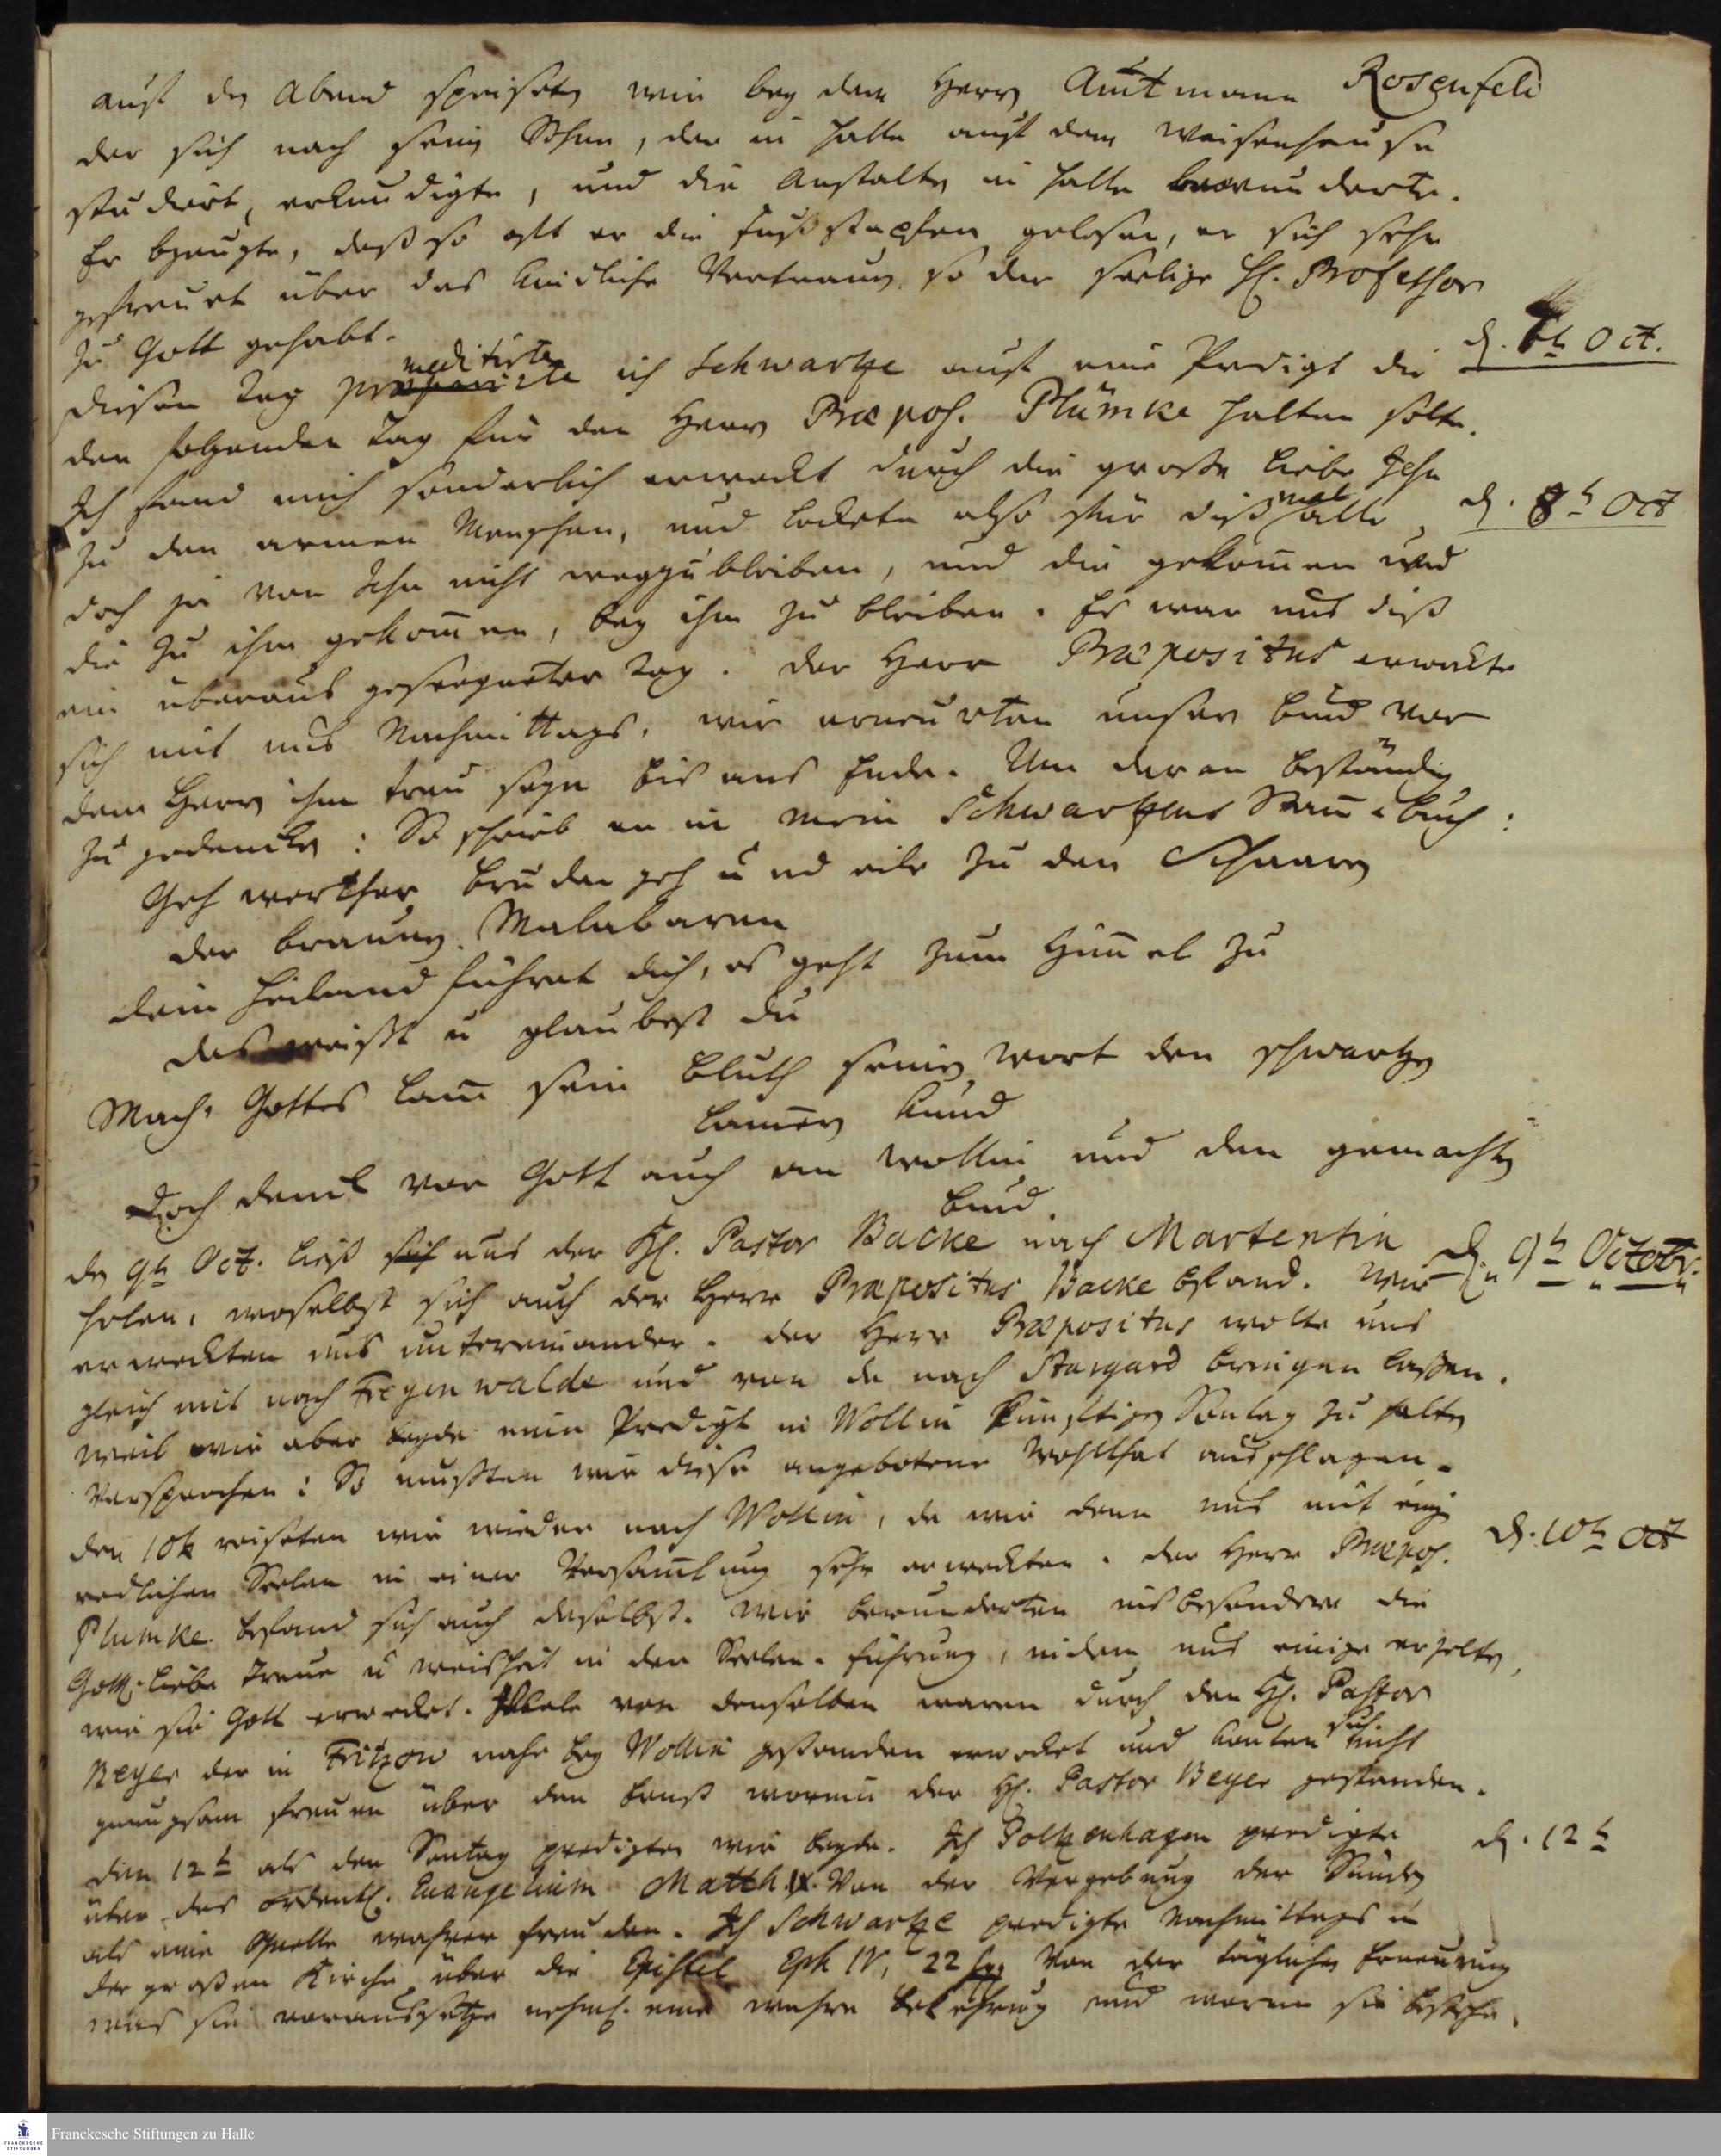 auf den Abend speiseten wir bey dem Herrn Amtmann Rosenfeld
der sich nach seinen Sohn, der in Halle auf dem Waisenhause
studirt, erkundigte, und die Anstalten in Halle bewunderte.
Er bezeugte, daß so oft er die Fußstapfen gelesen, er sich sehr
gefreuet über das kindliche Vertrauen, so der seelige H. Professor
zu Gott gehabt.
Diesen Tag meditirte ich Schwartze auf eine Predigt die
d. 7h Oct.
den folgenden Tag für den Herrn Præpos. Plümke halten solte.
Ich fand mich sonderlich erweckt durch die große Liebe Jesu
zu den armen Menschen, und lockete also für dißmal alle,
d. 8h Oct
doch ja von Jesu nicht wegzubleiben, und die gekommen und
die zu ihm gekom̅en, bey ihm zu bleiben. Es war uns diß
ein überaus geseegneter Tag. Der Herr Præpositus erweckte
sich mit uns Nachmittags, wir erneurten unsern Bund vor
dem Herrn ihm treu seyn bis ans Ende. Um daran beständig
zu gedencken: So schrieb er in mein Schwartzens Stam̅-Buch:
Geh werther Bruder geh und eile zu den Schaaren
der braunen Malabaren
Dein Heiland führet dich, es geht zum Him̅el zu
das weißt u glaubest du
Mach, Gottes Lam̅ sein Bluth sein Wort den schwartzen
Lam̅ern kund
Doch denck vor Gott auch an Wollin und den gemachten
Bund.
den 9h Oct. ließ sich uns der H. Pastor Backe nach Martentin
d. 9h Octobr.
holen, woselbst sich auch der Herr Præpositus Backe befand. Wir
erweckten uns untereinander. Der Herr Præpositus wolte uns
gleich mit nach Fregenwalde und von da nach Stargard bringen laßen.
Weil wir aber beyde eine Predigt in Wollin künftigen Sontag zu halten
versprochen: So mußten wir diese angebotene Wohlthat ausschlagen.
den 10h reiseten wir wieder nach Wollin, da wir denn uns mit einigen
d. 10h Oct
redlichen Seelen in einer Versam̅lung sehr erweckten. Der Herr Præpos.
Plumke befand sich auch daselbst. Wir bewunderten insbesondere die
Gottes Liebe Treue u Weisheit in der Seelen-Führung, indem uns einige erzelten,
wie sie Gott erwecket. Viele von denselben waren durch den H. Pastor
Beyer der in Fritzow nahe bey Wollin gestanden erwecket und konten sich nicht
gnugsam freuen über den Ernst worinn der H. Pastor Beyer gestanden.
Den 12h als den Sontag predigten wir beyde. Ich Poltzenhagen predigte
d. 12h
über das ordentl. Euangelium Matth. IX. Von der Vergebung der Sünden
als eine Quelle wahrer Freuden. Ich Schwartze predigte Nachmittags in
der großen Kirche über die Epistel Eph IV, 22 sq. Von der täglichen Erneurung
was sie voraussetze nehml. eine wahre Bekehrung und worinn sie bestehe.
Franckesche Stiftungen zu Halle